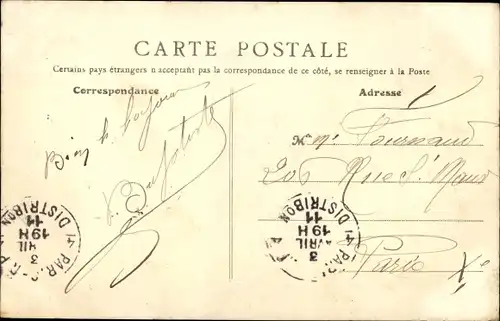 CARTE POSTALE
Certains pays étrangers n'acceptant pas la correspondance de ce côté, se renseigner à la Poste
Correspondance
Adresse
M me Fournaud
208 Rue St Maur
Paris Xe
PAR
DISTRIBON
3
RIL
19H
11
PAR
DISTRIBON
3
AVRIL
19H
11